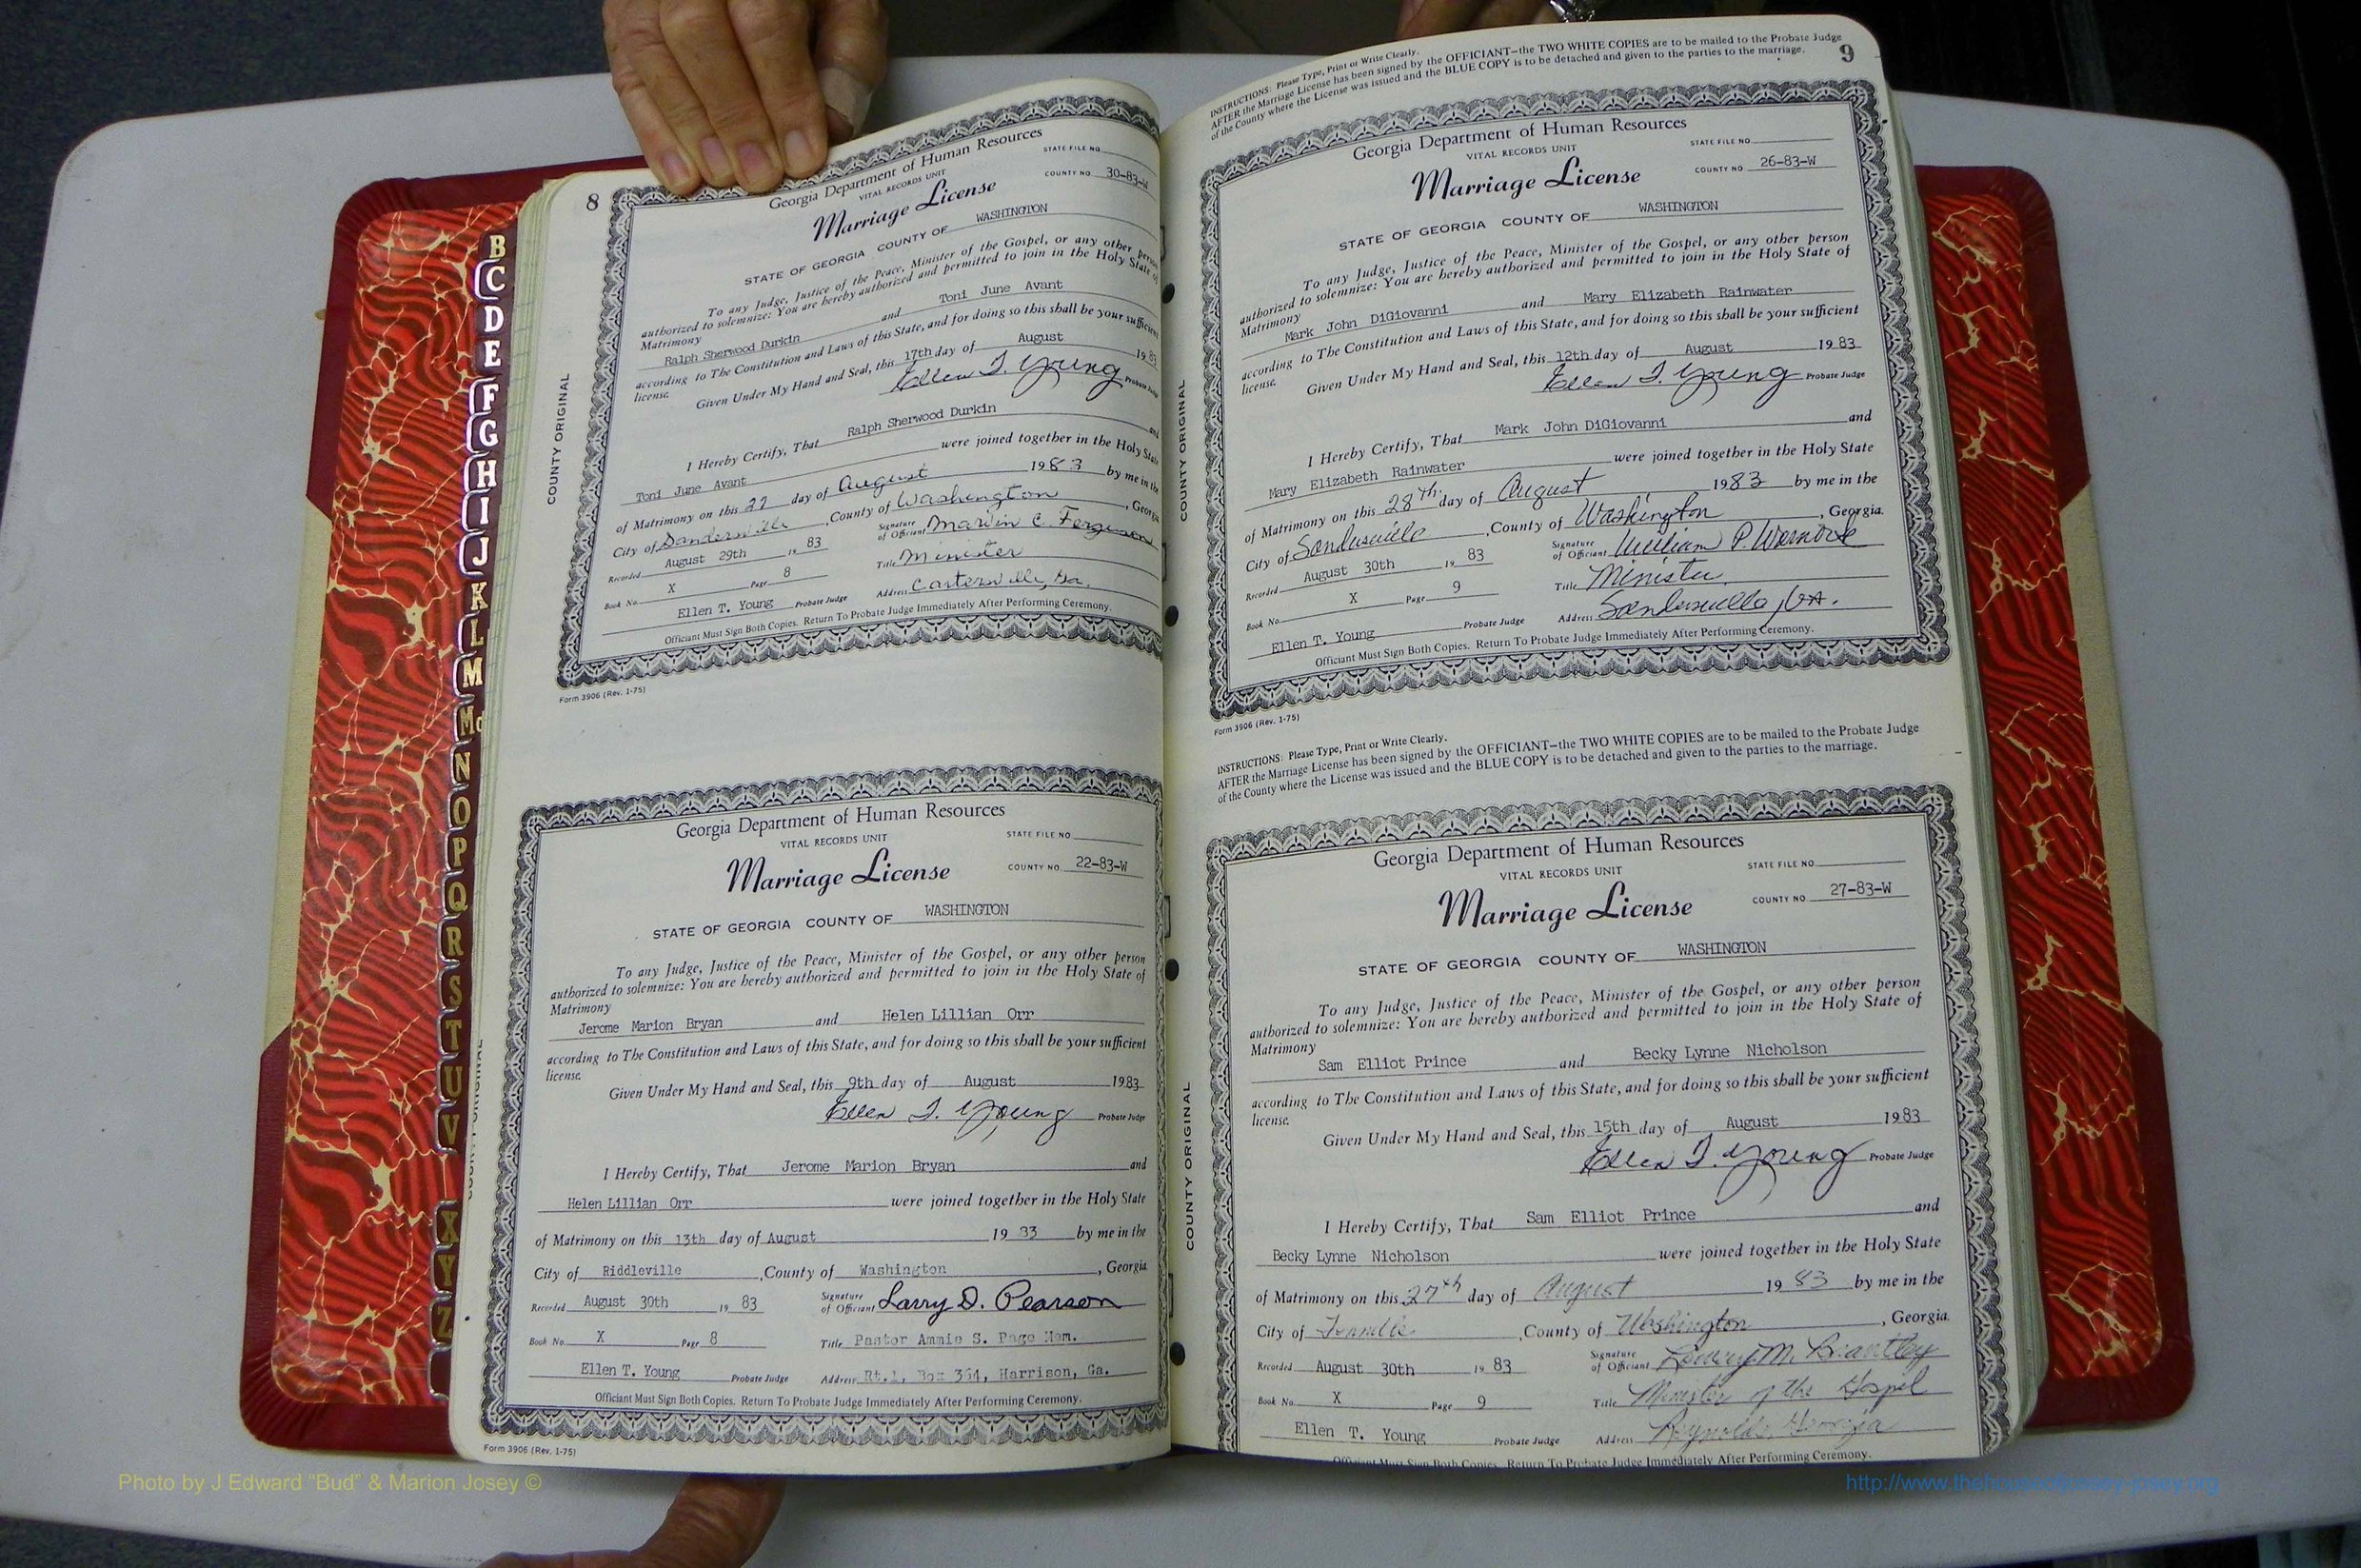 8
Georgia Department of Human Resources
VITAL RECORDS UNIT
STATE FILE NO.
Marriage License
COUNTY NO. 30-83-W
STATE OF GEORGIA COUNTY OF WASHINGTON
To any Judge, Justice of the Peace, Minister of the Gospel, or any other person
authorized to solemnize: You are hereby authorized and permitted to join in the Holy State of
Matrimony
Ralph Sherwood Durkin and Toni June Avant
according to The Constitution and Laws of this State, and for doing so this shall be your sufficient
license.
Given Under My Hand and Seal, this 17th day of August 1983
Ellen T. Young Probate Judge
I Hereby Certify, That Ralph Sherwood Durkin and
Toni June Avant were joined together in the Holy State
of Matrimony on this 27 day of August 1983 by me in the
City of Sandersville, County of Washington, Georgia
Recorded August 29th 19 83 Signature of Official Marvin C. Ferguson
Book No. X Page 8 Title Minister
Ellen T. Young Probate Judge Address Cartersville, Ga.
Officiant Must Sign Both Copies. Return To Probate Judge Immediately After Performing Ceremony.
Form 3906 (Rev. 1-75)
COUNTY ORIGINAL
Georgia Department of Human Resources
VITAL RECORDS UNIT
STATE FILE NO
Marriage License
COUNTY NO. 22-83-W
STATE OF GEORGIA COUNTY OF WASHINGTON
To any Judge, Justice of the Peace, Minister of the Gospel, or any other person
authorized to solemnize: You are hereby authorized and permitted to join in the Holy State of
Matrimony
Jerome Marion Bryan and Helen Lillian Orr
according to The Constitution and Laws of this State, and for doing so this shall be your sufficient
license.
Given Under My Hand and Seal, this 9th day of August 1983
Ellen T. Young Probate Judge
I Hereby Certify, That Jerome Marion Bryan and
Helen Lillian Orr were joined together in the Holy State
of Matrimony on this 13th day of August 19 83 by me in the
City of Riddleville, County of Washington, Georgia
Recorded August 30th 19 83 Signature of Official Larry D. Pearson
Book No. X Page 8 Title Pastor Ammie S. Page Mem.
Ellen T. Young Probate Judge Address Rt.1, Box 364, Harrison, Ga.
Officiant Must Sign Both Copies. Return To Probate Judge Immediately After Performing Ceremony.
Form 3906 (Rev. 1-75)
B
C
D
E
F
G
H
I
J
K
L
M
Mc
N
O
P
Q
R
S
T
U
V
X
Y
Z
9
INSTRUCTIONS: Please Type, Print or Write Clearly.
AFTER the Marriage License has been signed by the OFFICIANT—the TWO WHITE COPIES are to be mailed to the Probate Judge
of the County where the License was issued and the BLUE COPY is to be detached and given to the parties to the marriage.
Georgia Department of Human Resources
VITAL RECORDS UNIT
STATE FILE NO.
Marriage License
COUNTY NO. 26-83-W
STATE OF GEORGIA COUNTY OF WASHINGTON
To any Judge, Justice of the Peace, Minister of the Gospel, or any other person
authorized to solemnize: You are hereby authorized and permitted to join in the Holy State of
Matrimony
Mark John DiGiovanni and Mary Elizabeth Rainwater
according to The Constitution and Laws of this State, and for doing so this shall be your sufficient
license.
Given Under My Hand and Seal, this 12th day of August 1983
Ellen T. Young Probate Judge
I Hereby Certify, That Mark John DiGiovanni and
Mary Elizabeth Rainwater were joined together in the Holy State
of Matrimony on this 28th day of August 1983 by me in the
City of Sandersville, County of Washington, Georgia.
Recorded August 30th 19 83 Signature of Official William P. Warnock
Book No. X Page 9 Title Minister
Ellen T. Young Probate Judge Address Sandersville, GA.
Officiant Must Sign Both Copies. Return To Probate Judge Immediately After Performing Ceremony.
Form 3906 (Rev. 1-75)
COUNTY ORIGINAL
INSTRUCTIONS: Please Type, Print or Write Clearly.
AFTER the Marriage License has been signed by the OFFICIANT—the TWO WHITE COPIES are to be mailed to the Probate Judge
of the County where the License was issued and the BLUE COPY is to be detached and given to the parties to the marriage.
Georgia Department of Human Resources
VITAL RECORDS UNIT
STATE FILE NO
Marriage License
COUNTY NO. 27-83-W
STATE OF GEORGIA COUNTY OF WASHINGTON
To any Judge, Justice of the Peace, Minister of the Gospel, or any other person
authorized to solemnize: You are hereby authorized and permitted to join in the Holy State of
Matrimony
Sam Elliot Prince and Becky Lynne Nicholson
according to The Constitution and Laws of this State, and for doing so this shall be your sufficient
license.
Given Under My Hand and Seal, this 15th day of August 1983
Ellen T. Young Probate Judge
I Hereby Certify, That Sam Elliot Prince and
Becky Lynne Nicholson were joined together in the Holy State
of Matrimony on this 27th day of August 19 83 by me in the
City of Tennille, County of Washington, Georgia.
Recorded August 30th 19 83 Signature of Official M. Brantley
Book No. X Page 9 Title Minister of the Gospel
Ellen T. Young Probate Judge Address Reynolds, Georgia
Officiant Must Sign Both Copies. Return To Probate Judge Immediately After Performing Ceremony.
COUNTY ORIGINAL
Photo by J Edward "Bud" & Marion Josey ©